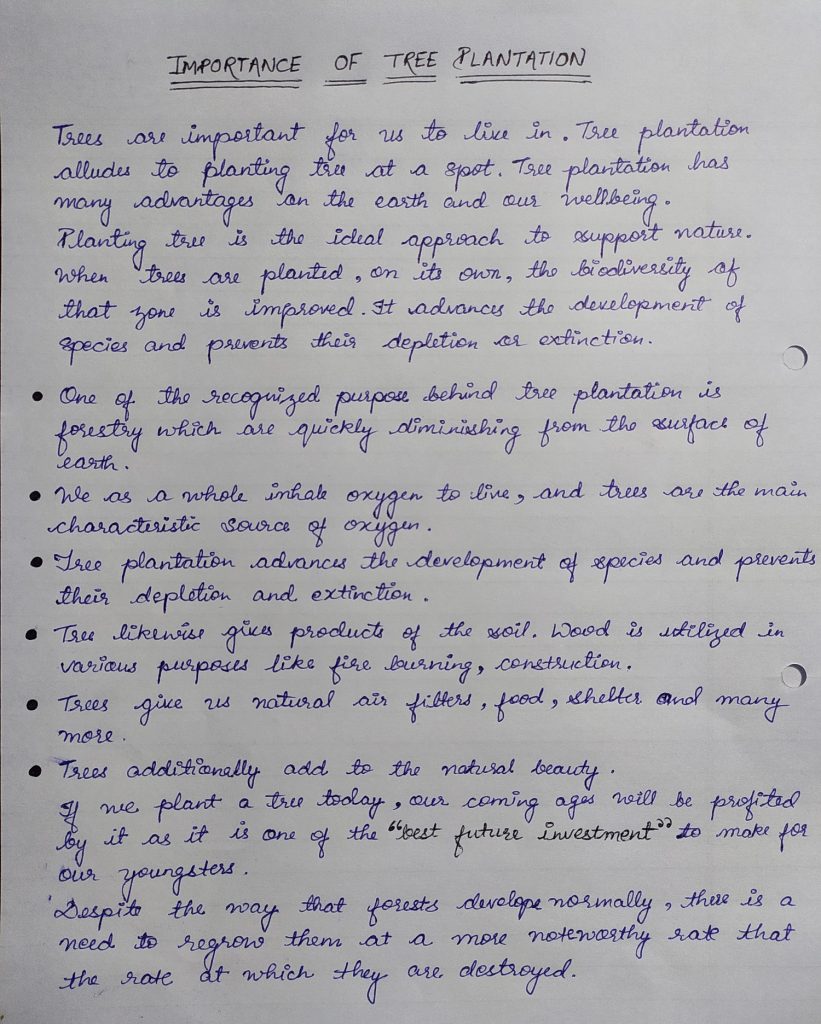 IMPORTANCE OF TREE PLANTATION
Trees are important for us to live in. Tree plantation
alludes to planting tree at a spot. Tree plantation has
many advantages on the earth and our wellbeing.
Planting tree is the ideal approach to support nature.
When trees are planted, on its own, the biodiversity of
that zone is improved. It advances the development of
species and prevents their depletion or extinction.
• One of the recognized purpose behind tree plantation is
forestry which are quickly diminishing from the surface of
earth.
• We as a whole inhale oxygen to live, and trees are the main
characteristic source of oxygen.
• Tree plantation advances the development of species and prevents
their depletion and extinction.
• Tree likewise gives products of the soil. Wood is utilized in
various purposes like fire burning, construction.
• Trees give us natural air filters, food, shelter and many
more.
• Trees additionally add to the natural beauty.
If we plant a tree today, our coming ages will be profited
by it as it is one of the "best future investment" to make for
our youngsters.
Despite the way that forests develope normally, there is a
need to regrow them at a more noteworthy rate that
the rate at which they are destroyed.